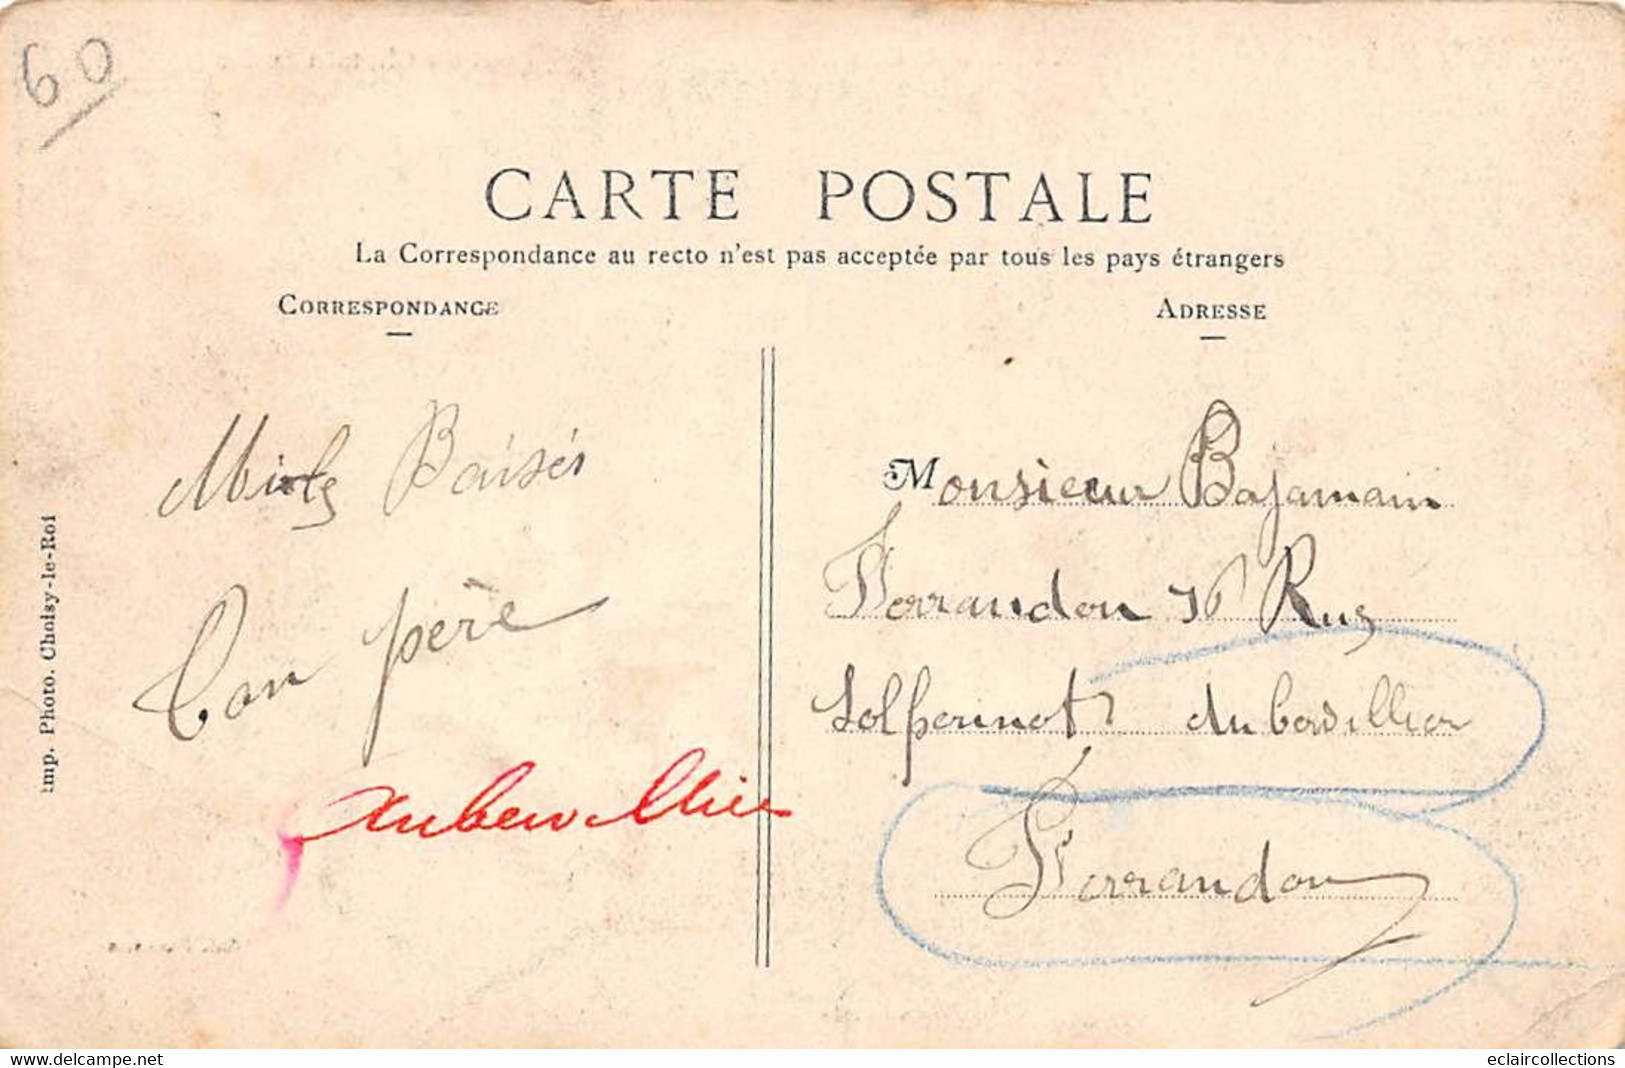 60
CARTE POSTALE
La Correspondance au recto n'est pas acceptée par tous les pays étrangers
CORRESPONDANCE
ADRESSE
Imp. Photo. Choisy-le-Roi
Baisés
Ton père
Aubervillier
Monsieur Bajamain
Ferrandon Rue
Solferinot Aubervillier
Ferrandon
eclaircollections